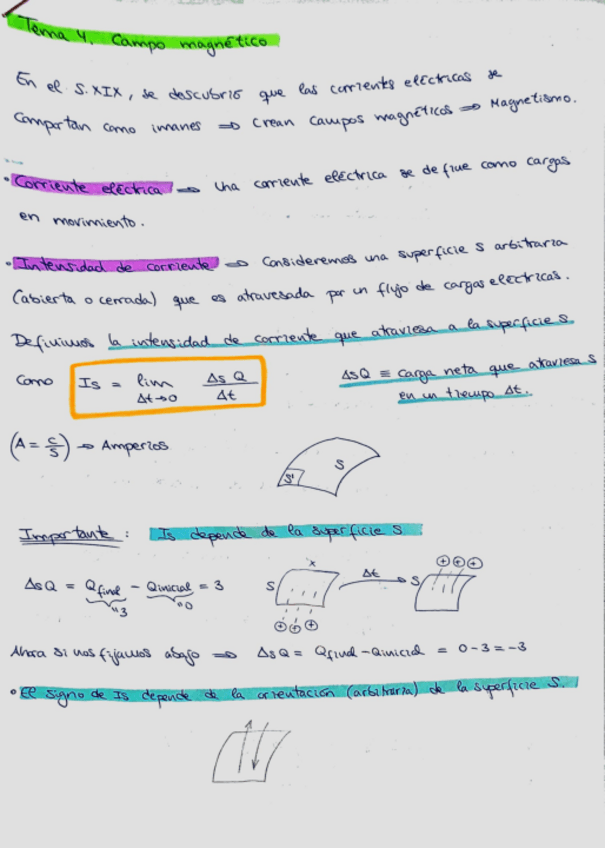 Tema 4. Campo magnético
En el S.XIX, se descubrió que las corrientes eléctricas se
comportan como imanes ⇒ Crean campos magnéticos ⇒ Magnetismo.
• Corriente eléctrica ⇒ Una corriente eléctrica se define como cargas
en movimiento.
• Intensidad de corriente ⇒ Consideremos una superficie S arbitraria
(abierta o cerrada) que es atravesada por un flujo de cargas eléctricas.
Definimos la intensidad de corriente que atraviesa a la superficie S
como Is = lim Δt→0 ΔsQ/Δt ΔsQ ≡ carga neta que atraviesa S
en un tiempo Δt.
(A = C/S) → Amperios
S
S'
Importante: Is depende de la superficie S
ΔsQ = Qfinal - Qinicial = 3
"3 "0
S x Δt S
+ + +
+ + +
Ahora si nos fijamos abajo ⇒ ΔsQ = Qfinal - Qinicial = 0-3 = -3
• El signo de Is depende de la orientación (arbitraria) de la superficie S.